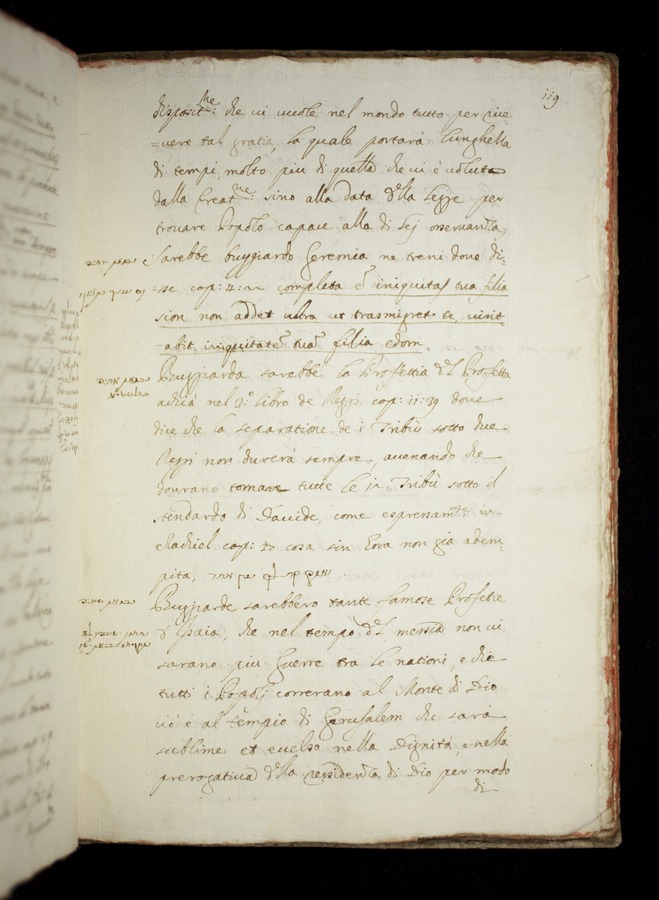 119
disposit.ne: che vi vuole nel mondo tutto per rice-
=vere tal gratia, la quale portarà lunghezza
di tempi molto piu di quella che vi è voluta
dalla Creat.ne: sino alla data d'lla legge per
trouare Popolo capace alla di lej osseruanza;
e Sarebbe buggiardo Geremia ne treni doue di-
=se cap: 4: 22 completa e' iniquitas tua filia
sion non addet ultra ut trasmigret te, visit
=abit iniquitate' tua' filia edom
Buggiarda sarebbe la Profettia d'l Profetta
achia nel 3.o libro de Reggi cap: 11: 39 doue
dice che la separatione de i Tribù sotto due
Reggi non durerà sempre, auenando che
dourano tornare tutte le 12 Tribù sotto il
stendardo di Dauide, come espressam.te in
echachiel cap: 37 cosa sin hora non già adem-
pita,
Buggiarde sarebbero tante famose Profetie
d' Isaia, che nel tempo d'l messia non vi
sarano più guerre tra le nationi, e che
tutti i Popoli correrano al Monte di Dio
ciò è al tempio di Gerusalem che sarà
sublime et excelso nella dignità, e nella
prerogativa d'lla residenza di Dio per modo
di